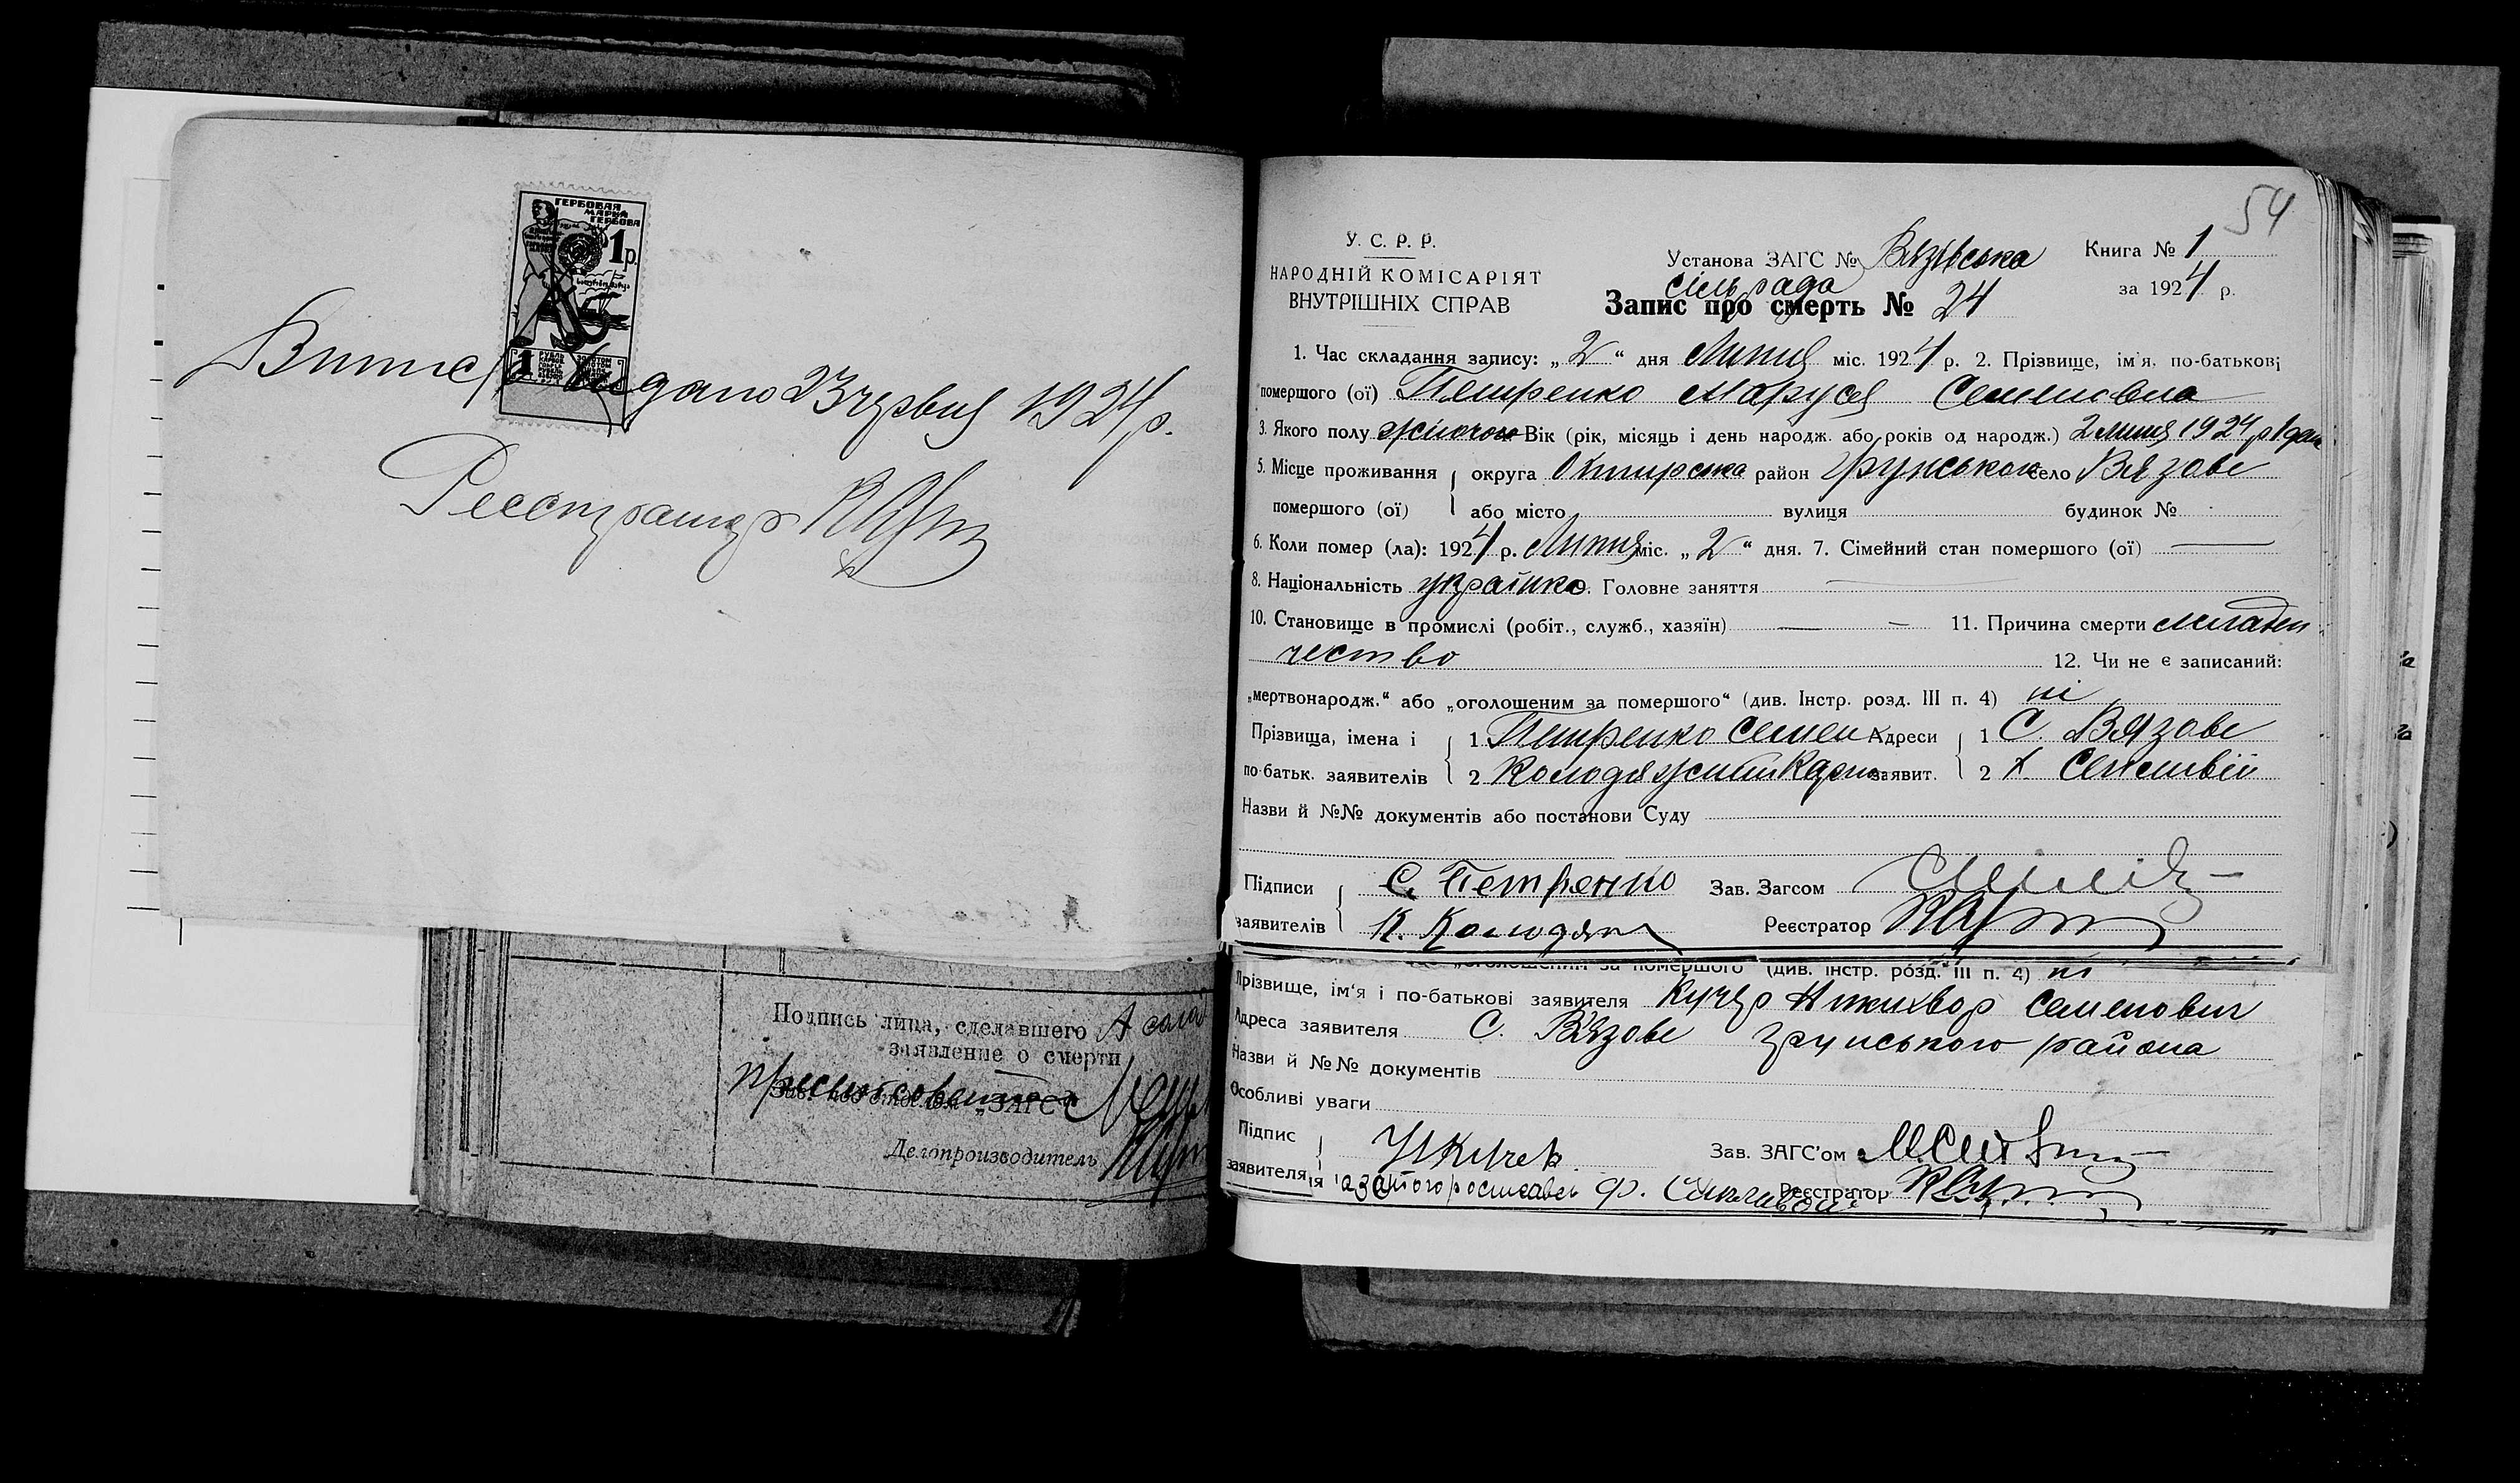 ГЕРБОВАЯ
МАРКА
ГЕРБОВА
1 р.
Витяг видано 23 червня 1924 р.
Реєстратор
Подпись лица, сделавшего
заявление о смерти
Зав. под отделом „ЗАГС“
Делопроизводитель
54
У. С. Р. Р.
НАРОДНІЙ КОМІСАРІЯТ
ВНУТРІШНІХ СПРАВ
Установа ЗАГС № Вязівська
сільрада
Книга № 1
за 1924 р.
Запис про смерть № 24
1. Час складання запису: „2“ дня Липня міс. 1924 р. 2. Прізвище, ім'я, по-батькові
помершого (ої) Петренко Маруся Семеновна
3. Якого полу жіночого Вік (рік, місяць і день народж. або років од народж.) 2 липня 1924 р 1 день
5. Місце проживання округа Охтирська район Грунський село Вязове
помершого (ої) або місто вулиця будинок №
6. Коли помер (ла): 1924 р. Липня міс. „2“ дня. 7. Сімейний стан помершого (ої) —
8. Національність українка. Головне заняття
10. Становище в промислі (робіт., служб., хазяїн) — — 11. Причина смерти младен
чество 12. Чи не є записаний:
„мертвонародж.“ або „оголошеним за помершого“ (див. Інстр. розд. III п. 4) ні
Прізвища, імена і 1 Петренко Семен Адреси 1 С. Вязове
по-батьк. заявителів 2 Колодяжний заявит. 2 х
Назви й №№ документів або постанови Суду
Підписи С. Петренко Зав. Загсом
заявителів К. Колодяж Реєстратор
„оголошеним за помершого“ (див. Інстр. розд. III п. 4) ні
Прізвище, ім'я і по-батькові заявителя Кучер Никихвор Семенович
Адреса заявителя С. Вязове Грунського района
Назви й №№ документів
Особливі уваги
Підпис Н Кучер Зав. ЗАГС'ом
заявителя Реєстратор